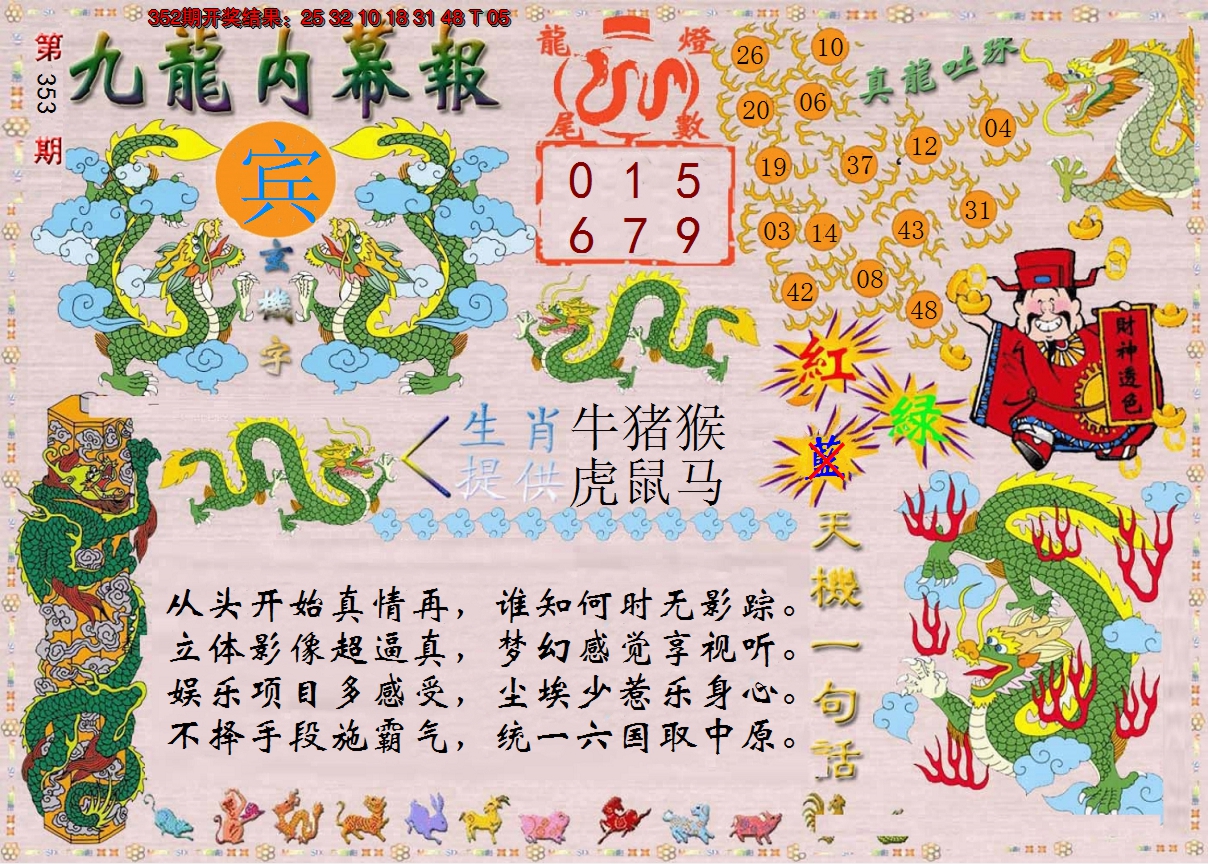 352期开奖结果：25 32 10 18 31 48 T 05
第353期
九龍内幕報
龍燈尾數
0 1 5
6 7 9
真龍吐珠
26 10
20 06
19 37 12 04
03 14 43 31
42 08 48
宾
玄機字
紅
綠
藍
財神透色
生肖提供
牛猪猴
虎鼠马
天機一句話
从头开始真情再，谁知何时无影踪。
立体影像超逼真，梦幻感觉享视听。
娱乐项目多感受，尘埃少惹乐身心。
不择手段施霸气，统一六国取中原。